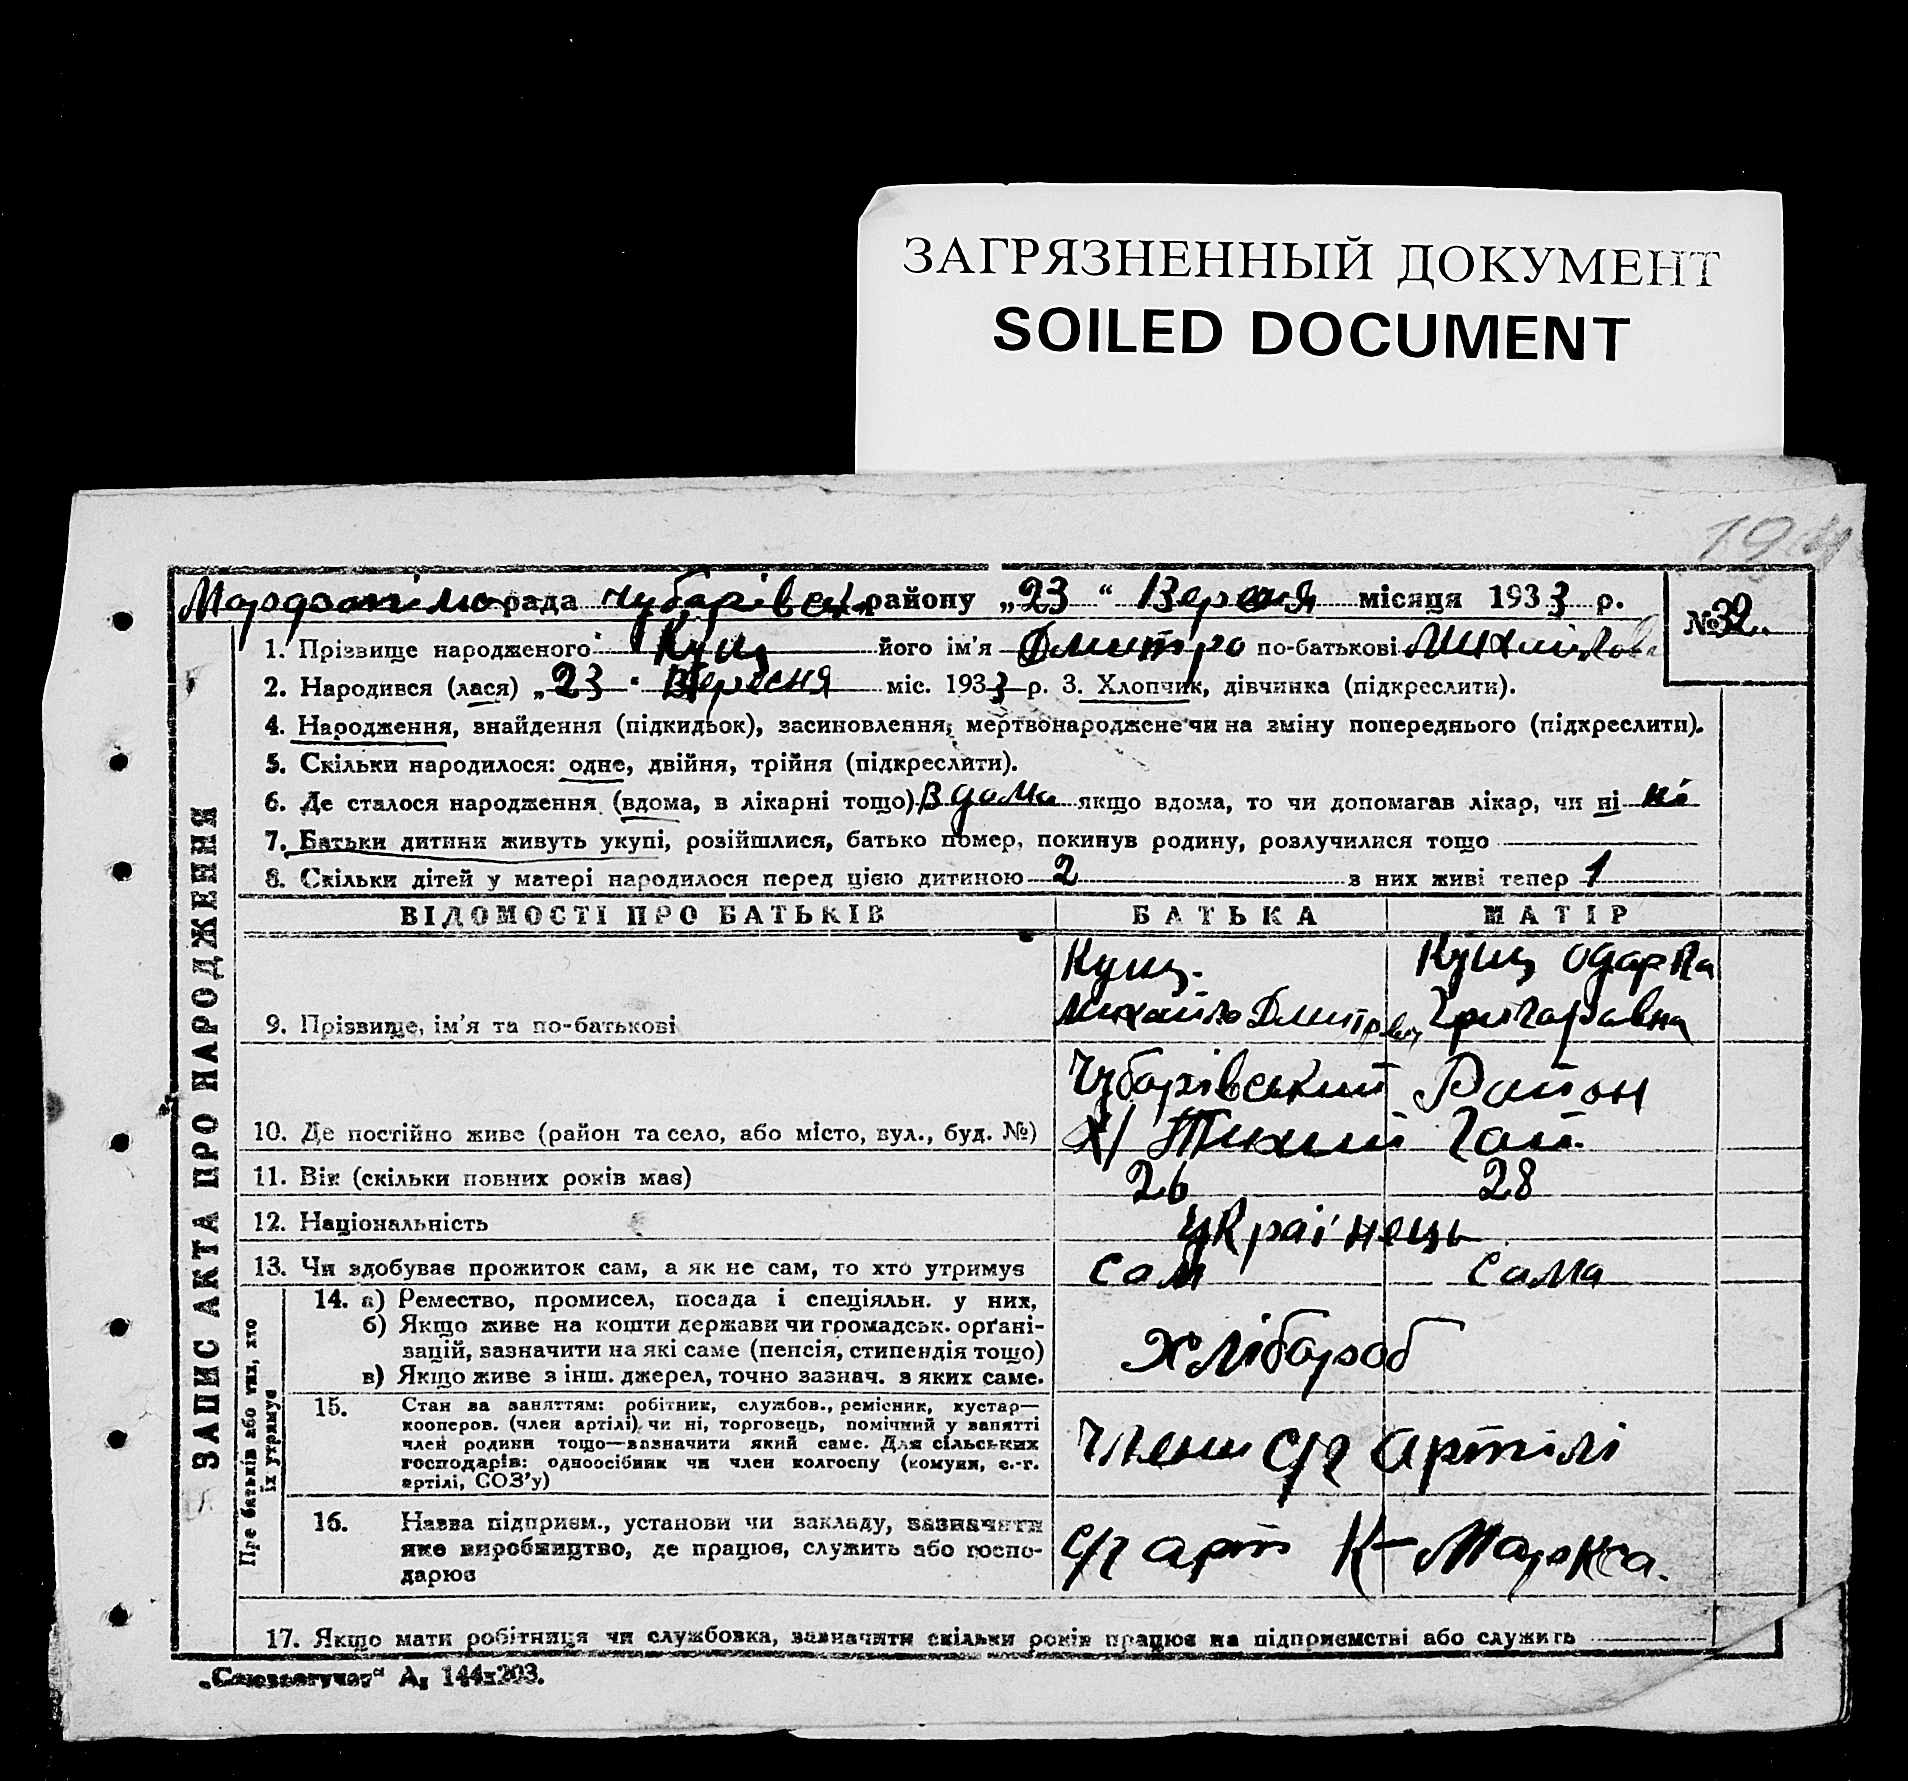 ЗАГРЯЗНЕННЫЙ ДОКУМЕНТ
SOILED DOCUMENT
рада Чубарівськ району „23“ Вересня місяця 1933 р.
№ 32.
1. Прізвище народженого Кущ його ім'я Дмитро по-батькові Михайлова
2. Народився (лася) „23 " Вересня міс. 1933 р. 3. Хлопчик, дівчинка (підкреслити).
4. Народження, знайдення (підкидьок), засиновлення, мертвонароджене чи на зміну попереднього (підкреслити).
5. Скільки народилося: одне, двійня, трійня (підкреслити).
6. Де сталося народження (вдома, в лікарні тощо) вдома якщо вдома, то чи допомагав лікар, чи ні ні
7. Батьки дитини живуть укупі, розійшлися, батько помер, покинув родину, розлучилися тощо
8. Скільки дітей у матері народилося перед цією дитиною 2 з них живі тепер 1
ЗАПИС АКТА ПРО НАРОДЖЕННЯ
ВІДОМОСТІ ПРО БАТЬКІВ БАТЬКА МАТІР
Кущ. Кущ Одарка
9. Прізвище, ім'я та по-батькові Михайло Дмитрович Григоравна
Чубарівський Район
10. Де постійно живе (район та село, або місто, вул., буд. №) х/ Тихий Гай.
11. Вік (скільки повних років має) 26 28
12. Національність Українець
13. Чи здобуває прожиток сам, а як не сам, то хто утримує сам сама
Пре батьків або тих, хто їх утримує
14. а) Ремество, промисел, посада і спеціяльн. у них,
б) Якщо живе на кошти держави чи громадськ. орґані-
зацій, зазначити на які саме (пенсія, стипендія тощо) Хлібороб
в) Якщо живе з інш. джерел, точно зазнач. з яких саме.
15. Стан за заняттям: робітник, службов., ремісник, кустар—
кооперов. (член артілі) чи ні, торговець, помічний у занятті
член родини тощо—зазначити який саме. Для сільських Члени с/г артілі
господарів: одноосібник чи член колгоспу (комуни, с.-г.
артілі, СОЗ'у)
16. Назва підприєм., установи чи закладу, зазначити
яке виробництво, де працює, служить або госпо- с/г арт К-Маркса.
дарює
17. Якщо мати робітниця чи службовка, зазначити скільки років працює на підприємстві або служить
А, 144-203.